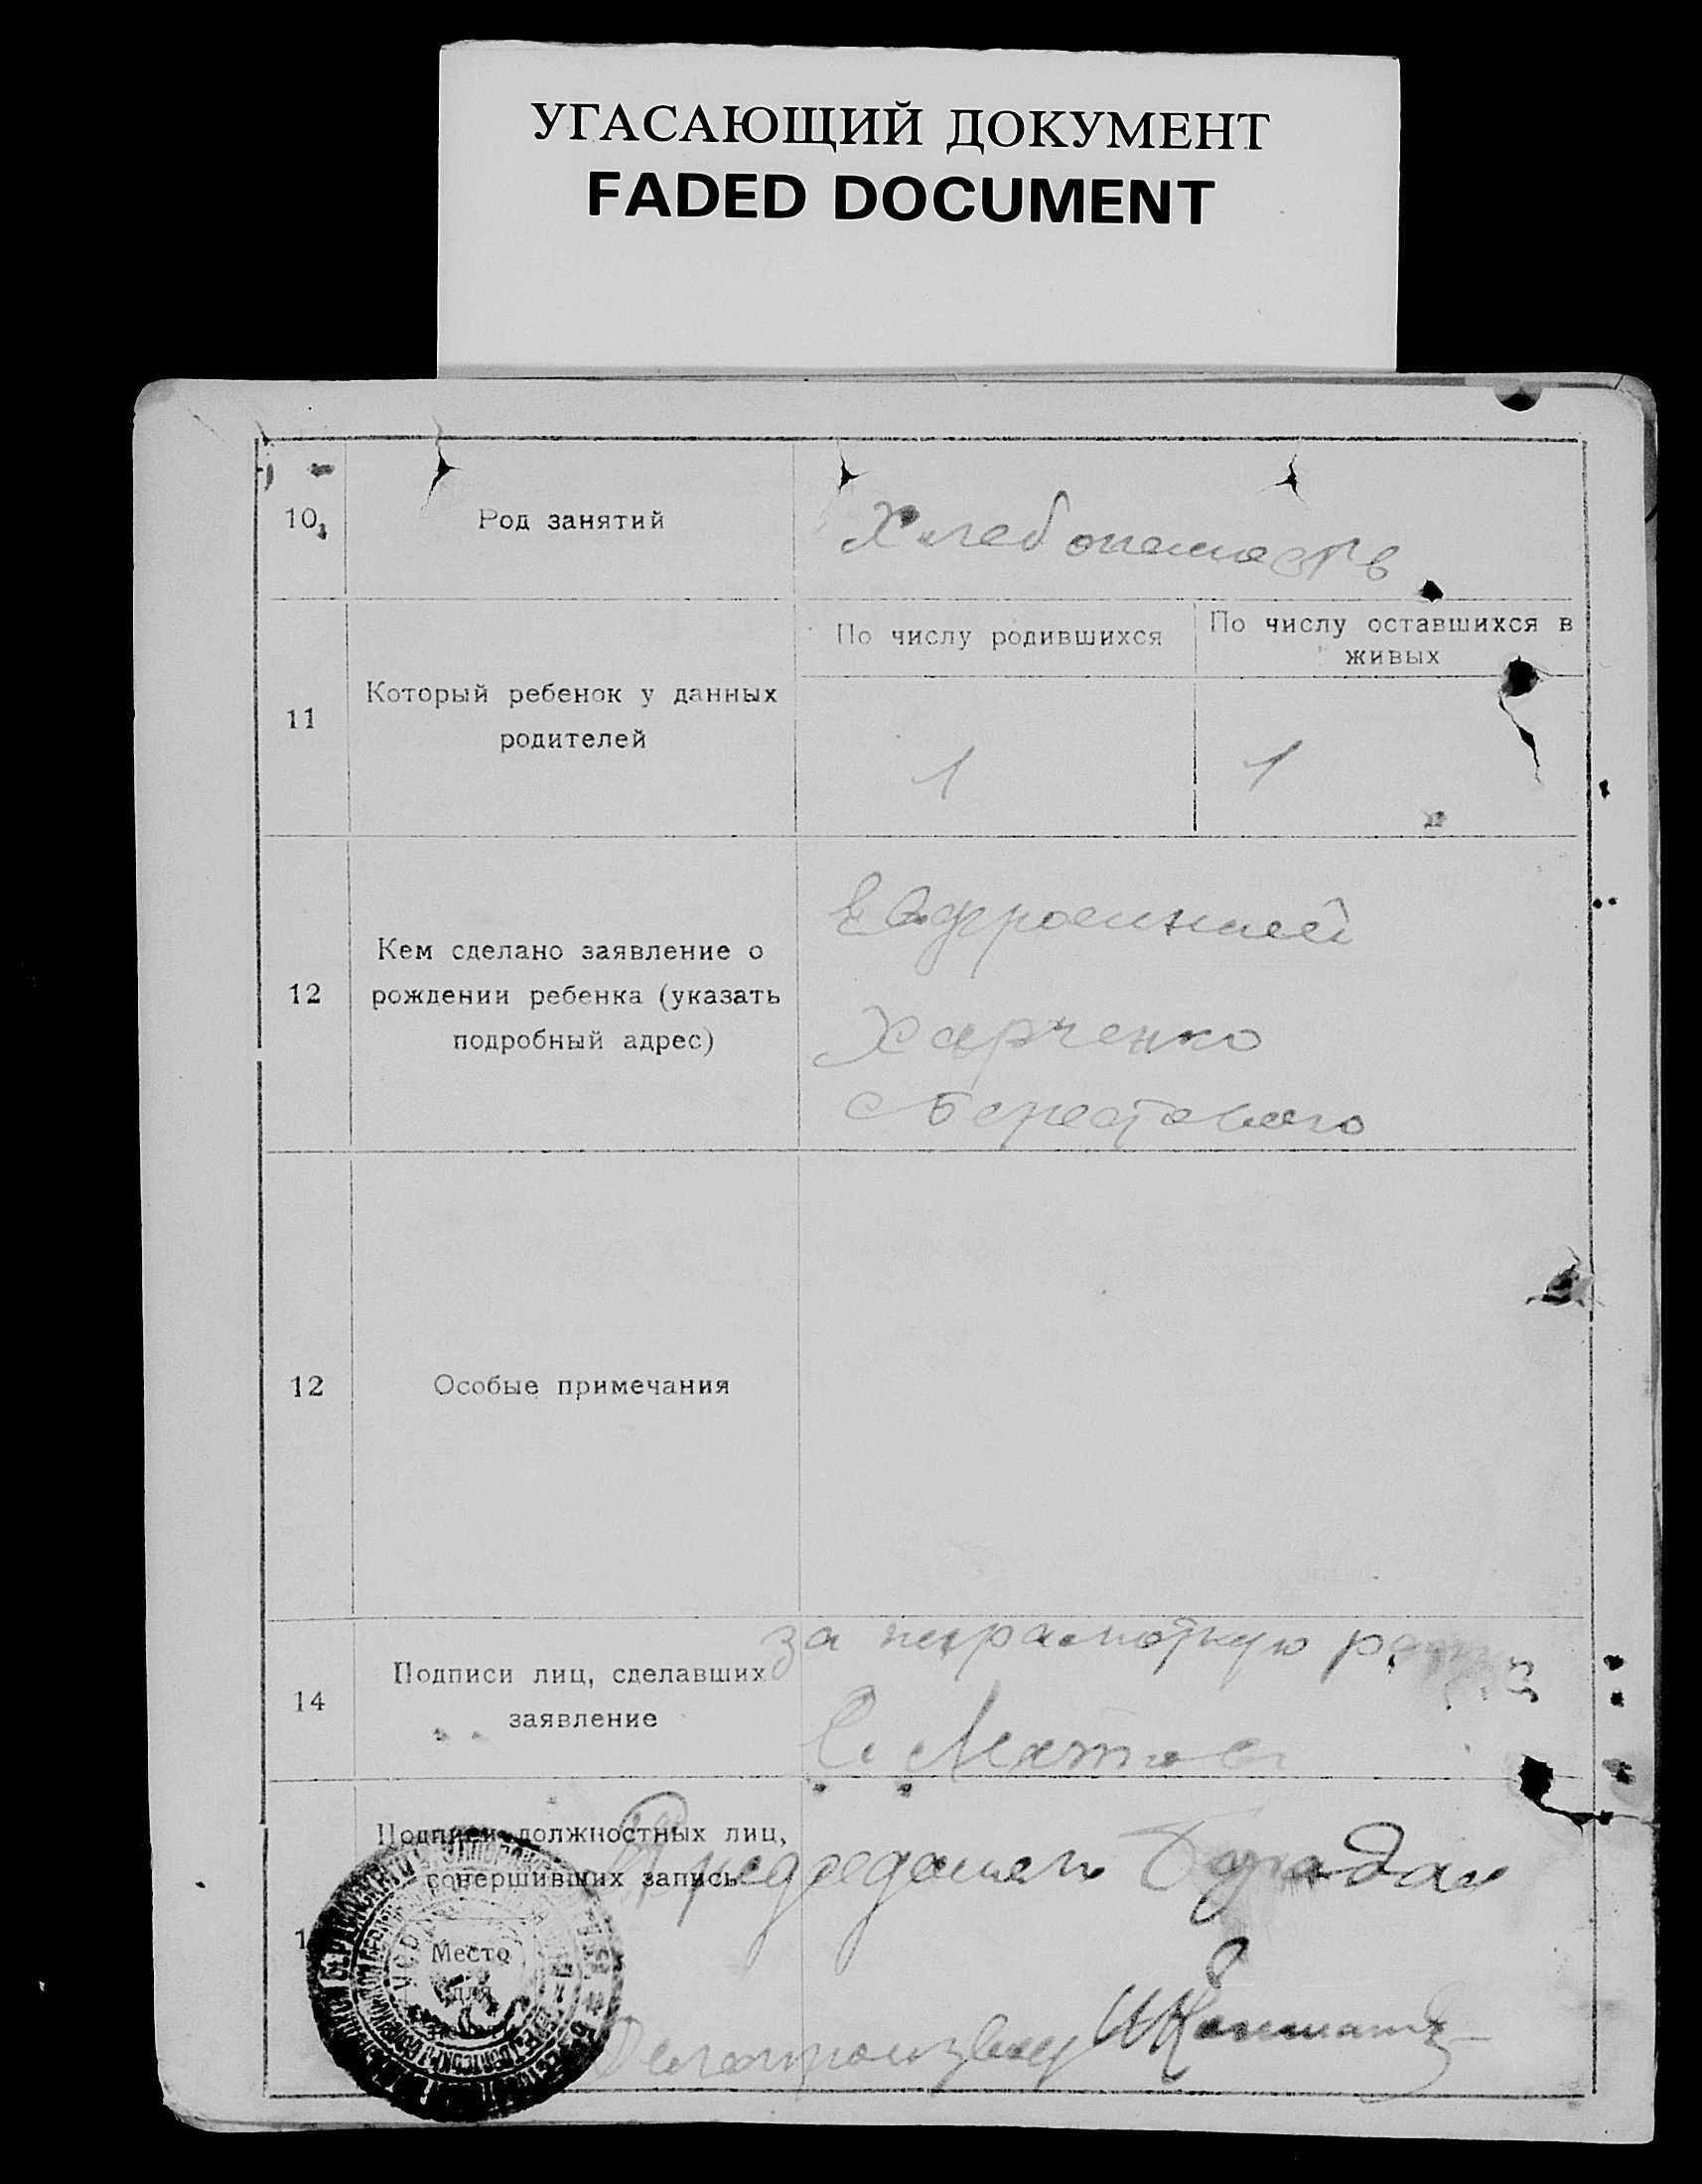 УГАСАЮЩИЙ ДОКУМЕНТ
FADED DOCUMENT
10
Род занятий
Хлебопашеств
11
Который ребенок у данных
родителей
По числу родившихся
По числу оставшихся в
живых
1
1
12
Кем сделано заявление о
рождении ребенка (указать
подробный адрес)
Харченко
с Берестового
12
Особые примечания
14
Подписи лиц, сделавших
заявление
за неграмотную
Подписи должностных лиц,
совершивших запись
Председатель
Место
для
Делопроизвод